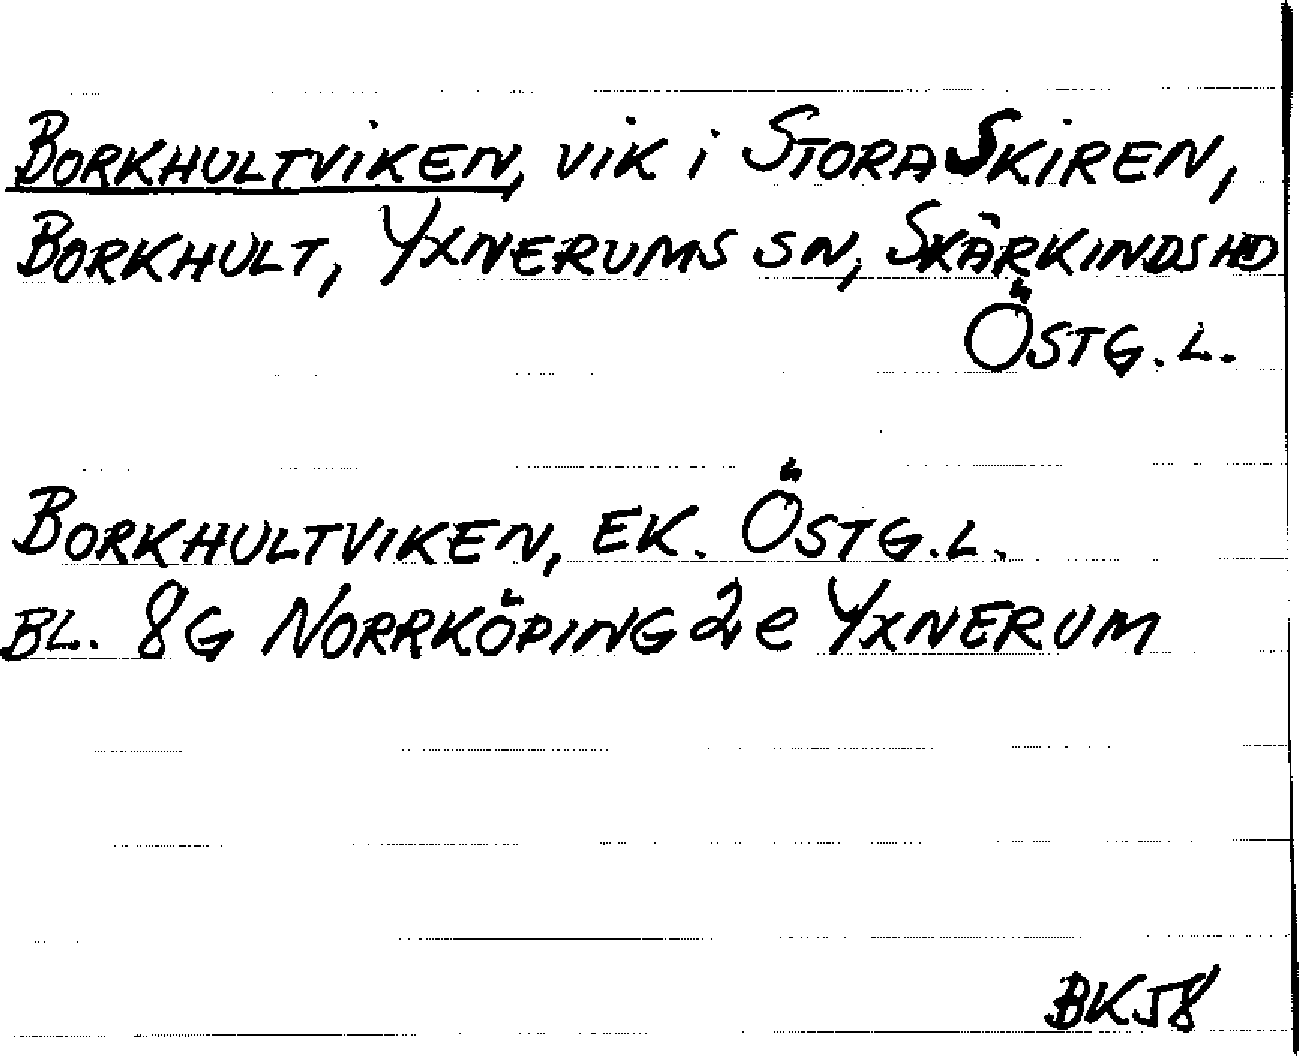 BORKHULTVIKEN, VIK i STORA SKIREN,
BORKHULT, YXNERUMS SN, SKÄRKINDS HD
ÖSTG. L.
BORKHULTVIKEN, EK. ÖSTG. L.
BL. 8G NORRKÖPING 2e YXNERUM
BK58